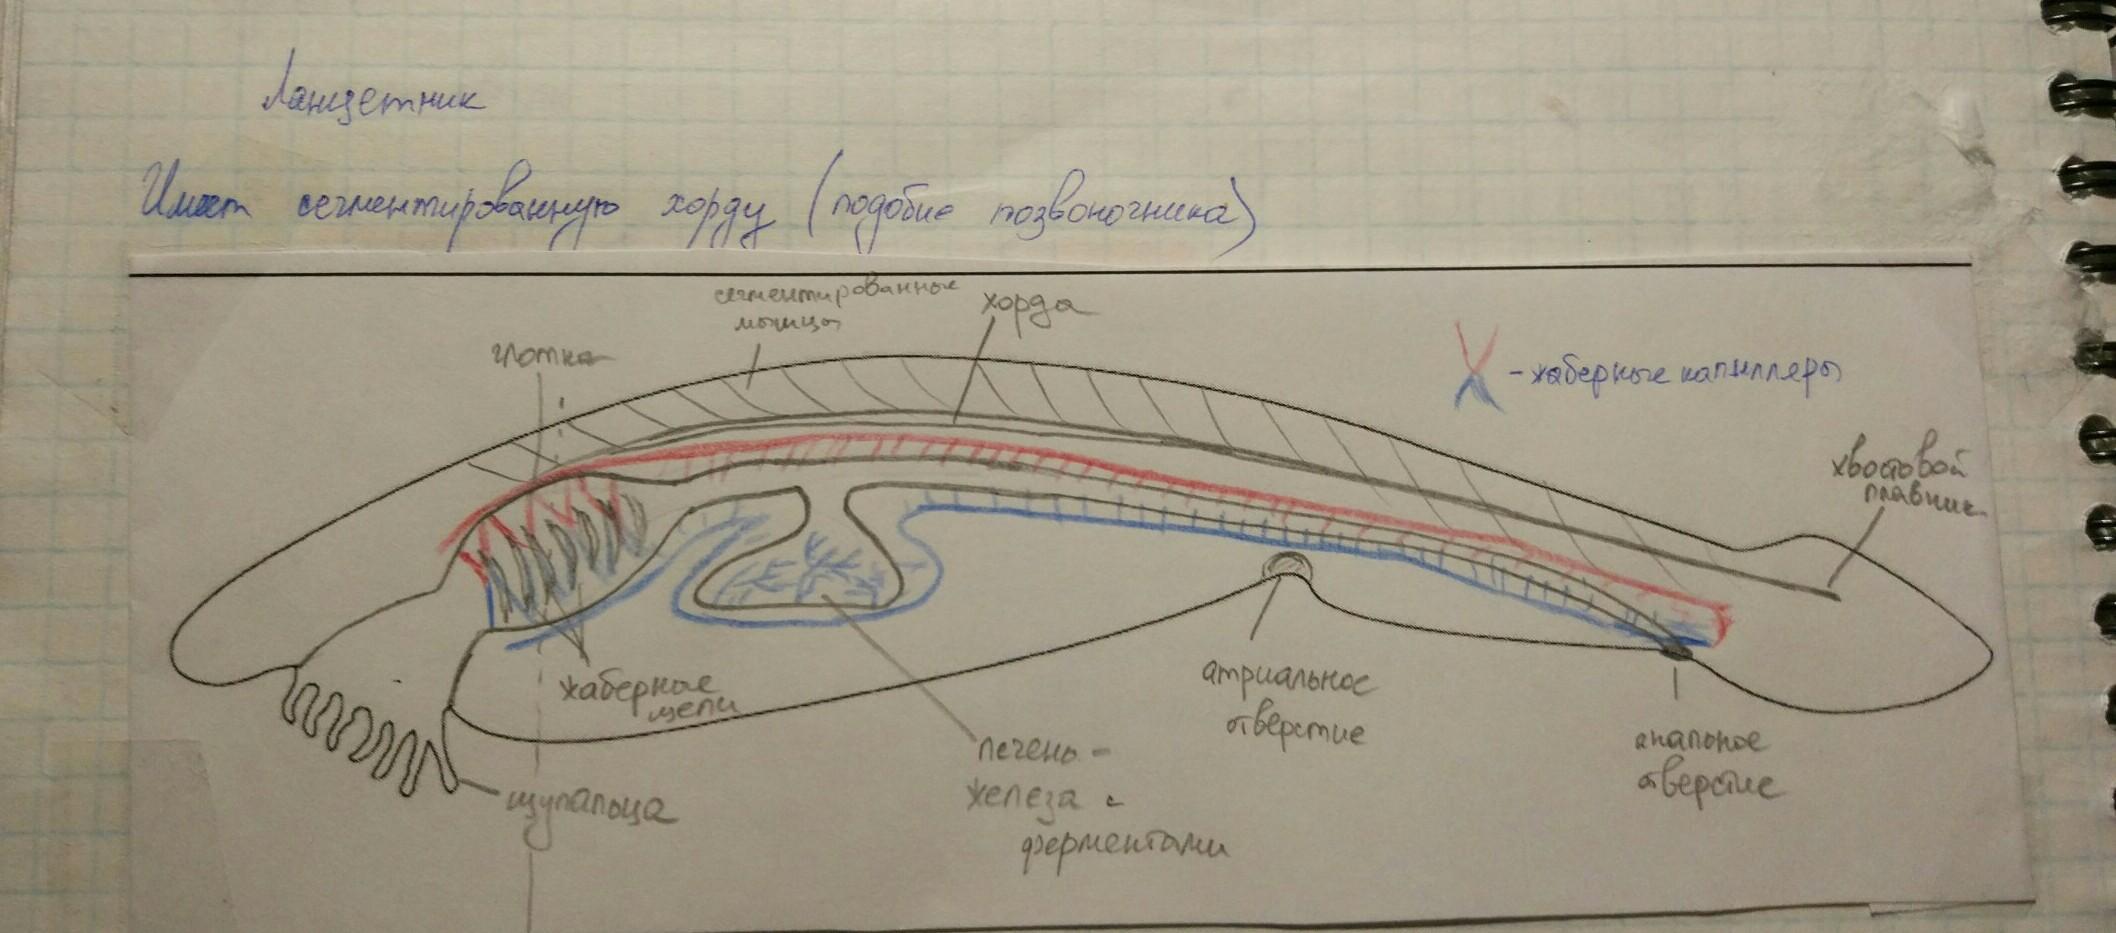 Ланцетник
Имеет сегментированную хорду (подобие позвоночника)
сегментированные
мышцы
хорда
глотка
- жаберные капилляры
хвостовой
плавник
жаберные
щели
щупальца
печень -
железа с
ферментами
атриальное
отверстие
анальное
отверстие